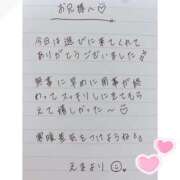 お兄様へ♡
今日は遊びに来てくれて
ありがとうございました
無事に早めに用事が終
わってスッキリしにきてもら
えて嬉しかった〜♡
寒暖差気をつけようね
えまより